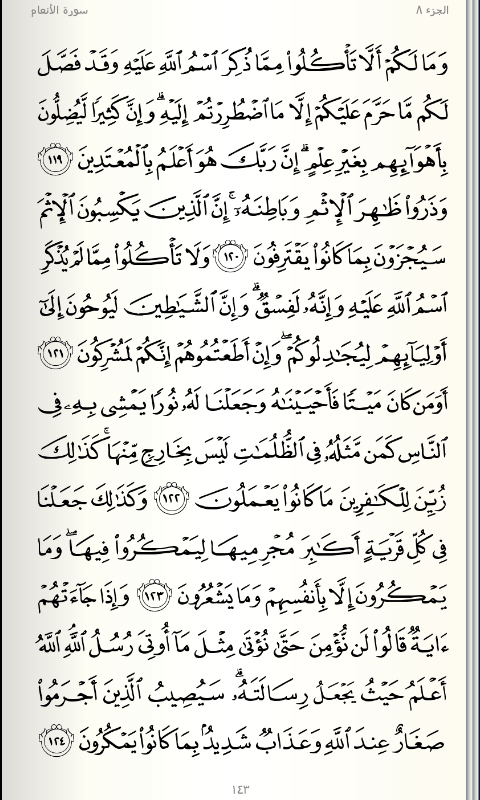 الجزء ٨
سورة الأنعام
وَمَا لَكُمْ أَلَّا تَأْكُلُوا۟ مِمَّا ذُكِرَ ٱسْمُ ٱللَّهِ عَلَيْهِ وَقَدْ فَصَّلَ
لَكُم مَّا حَرَّمَ عَلَيْكُمْ إِلَّا مَا ٱضْطُرِرْتُمْ إِلَيْهِ ۗ وَإِنَّ كَثِيرًا لَّيُضِلُّونَ
بِأَهْوَآئِهِم بِغَيْرِ عِلْمٍ ۗ إِنَّ رَبَّكَ هُوَ أَعْلَمُ بِٱلْمُعْتَدِينَ ١١٩
وَذَرُوا۟ ظَٰهِرَ ٱلْإِثْمِ وَبَاطِنَهُۥٓ ۚ إِنَّ ٱلَّذِينَ يَكْسِبُونَ ٱلْإِثْمَ
سَيُجْزَوْنَ بِمَا كَانُوا۟ يَقْتَرِفُونَ ١٢٠ وَلَا تَأْكُلُوا۟ مِمَّا لَمْ يُذْكَرِ
ٱسْمُ ٱللَّهِ عَلَيْهِ وَإِنَّهُۥ لَفِسْقٌ ۗ وَإِنَّ ٱلشَّيَٰطِينَ لَيُوحُونَ إِلَىٰٓ
أَوْلِيَآئِهِمْ لِيُجَٰدِلُوكُمْ ۖ وَإِنْ أَطَعْتُمُوهُمْ إِنَّكُمْ لَمُشْرِكُونَ ١٢١
أَوَمَن كَانَ مَيْتًا فَأَحْيَيْنَٰهُ وَجَعَلْنَا لَهُۥ نُورًا يَمْشِى بِهِۦ فِى
ٱلنَّاسِ كَمَن مَّثَلُهُۥ فِى ٱلظُّلُمَٰتِ لَيْسَ بِخَارِجٍ مِّنْهَا ۚ كَذَٰلِكَ
زُيِّنَ لِلْكَٰفِرِينَ مَا كَانُوا۟ يَعْمَلُونَ ١٢٢ وَكَذَٰلِكَ جَعَلْنَا
فِى كُلِّ قَرْيَةٍ أَكَٰبِرَ مُجْرِمِيهَا لِيَمْكُرُوا۟ فِيهَا ۖ وَمَا
يَمْكُرُونَ إِلَّا بِأَنفُسِهِمْ وَمَا يَشْعُرُونَ ١٢٣ وَإِذَا جَآءَتْهُمْ
ءَايَةٌ قَالُوا۟ لَن نُّؤْمِنَ حَتَّىٰ نُؤْتَىٰ مِثْلَ مَآ أُوتِىَ رُسُلُ ٱللَّهِ ۘ ٱللَّهُ
أَعْلَمُ حَيْثُ يَجْعَلُ رِسَالَتَهُۥ ۗ سَيُصِيبُ ٱلَّذِينَ أَجْرَمُوا۟
صَغَارٌ عِندَ ٱللَّهِ وَعَذَابٌ شَدِيدٌۢ بِمَا كَانُوا۟ يَمْكُرُونَ ١٢٤
١٤٣